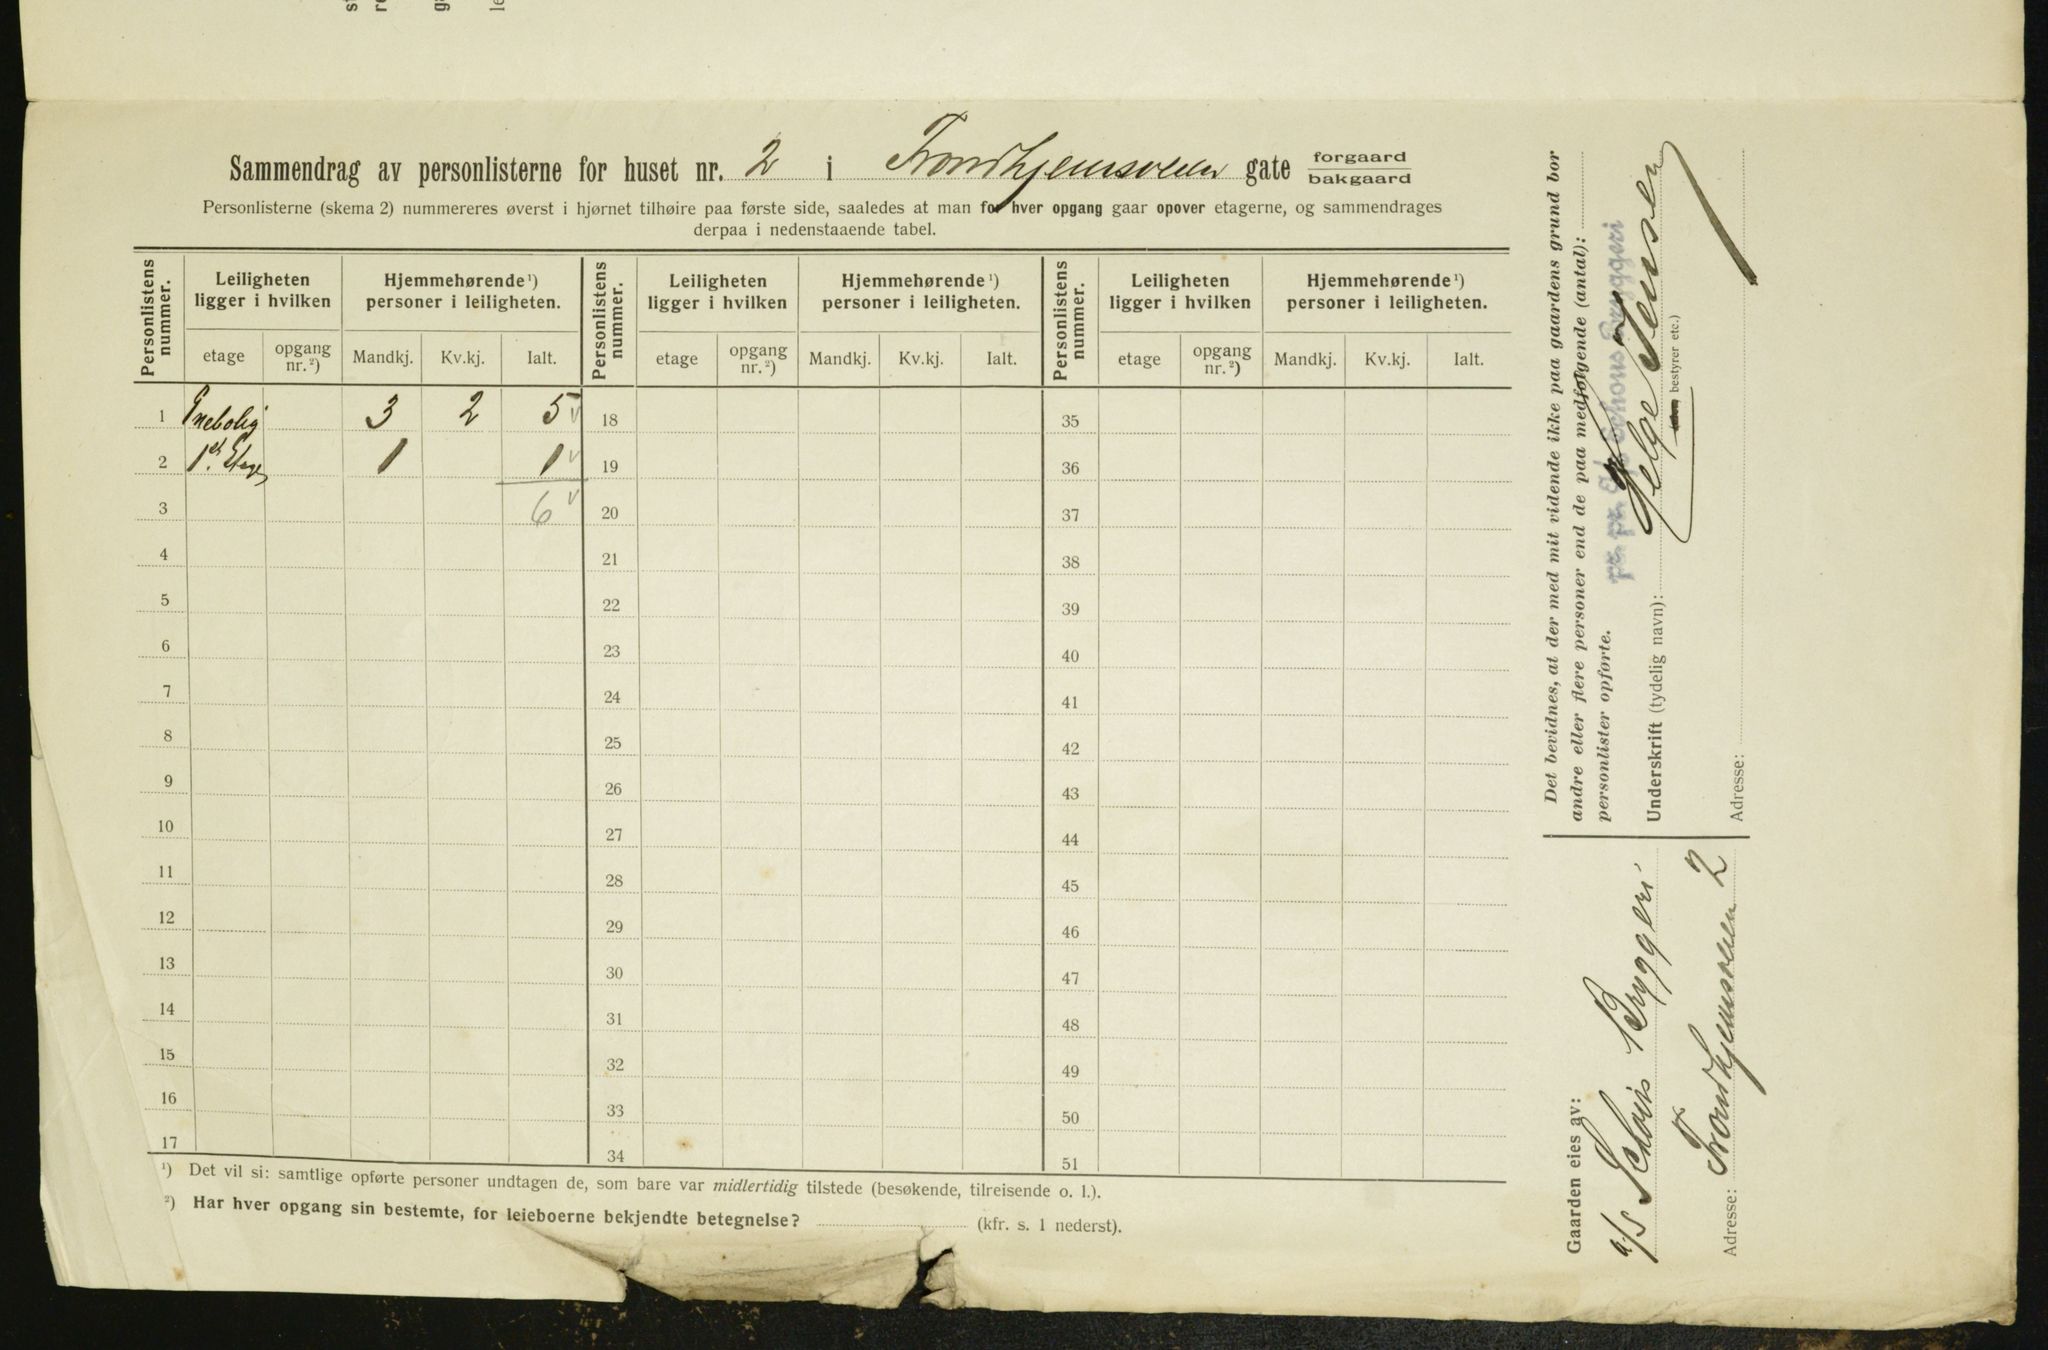 Sammendrag av personlisterne for huset nr. 2 i Trondhjemsveien gate forgaard
bakgaard
Personlisterne (skema 2) nummereres øverst i hjørnet tilhøire paa første side, saaledes at man for hver opgang gaar opover etagerne, og sammendrages
derpaa i nedenstaaende tabel.
Personlistens nummer. Leiligheten ligger i hvilken Hjemmehørende ¹) personer i leiligheten. Personlistens nummer. Leiligheten ligger i hvilken Hjemmehørende ¹) personer i leiligheten. Personlistens nummer. Leiligheten ligger i hvilken Hjemmehørende ¹) personer i leiligheten.
etage opgang nr. ²) Mandkj. Kv.kj. Ialt. etage opgang nr. ²) Mandkj. Kv.kj. Ialt. etage opgang nr. ²) Mandkj. Kv.kj. Ialt.
1 Enebolig 3 2 5 v 18 35
2 1st Etage 1 1 v 19 36
3 6 v 20 37
4 21 38
5 22 39
6 23 40
7 24 41
8 25 42
9 26 43
10 27 44
11 28 45
12 29 46
13 30 47
14 31 48
15 32 49
16 33 50
17 34 51
¹) Det vil si: samtlige opførte personer undtagen de, som bare var midlertidig tilstede (besøkende, tilreisende o. l.).
²) Har hver opgang sin bestemte, for leieboerne bekjendte betegnelse? (kfr. s. 1 nederst).
Det bevidnes, at der med mit vidende ikke paa gaardens grund bor
andre eller flere personer end de paa medfølgende (antal):
personlister opførte.
pr. pr. A/S Schous Bryggeri
Underskrift (tydelig navn): Helge Jensen
bestyrer etc.)
Adresse:
Gaarden eies av:
A/S Schous Bryggeri
Adresse: Trondhjemsveien 2